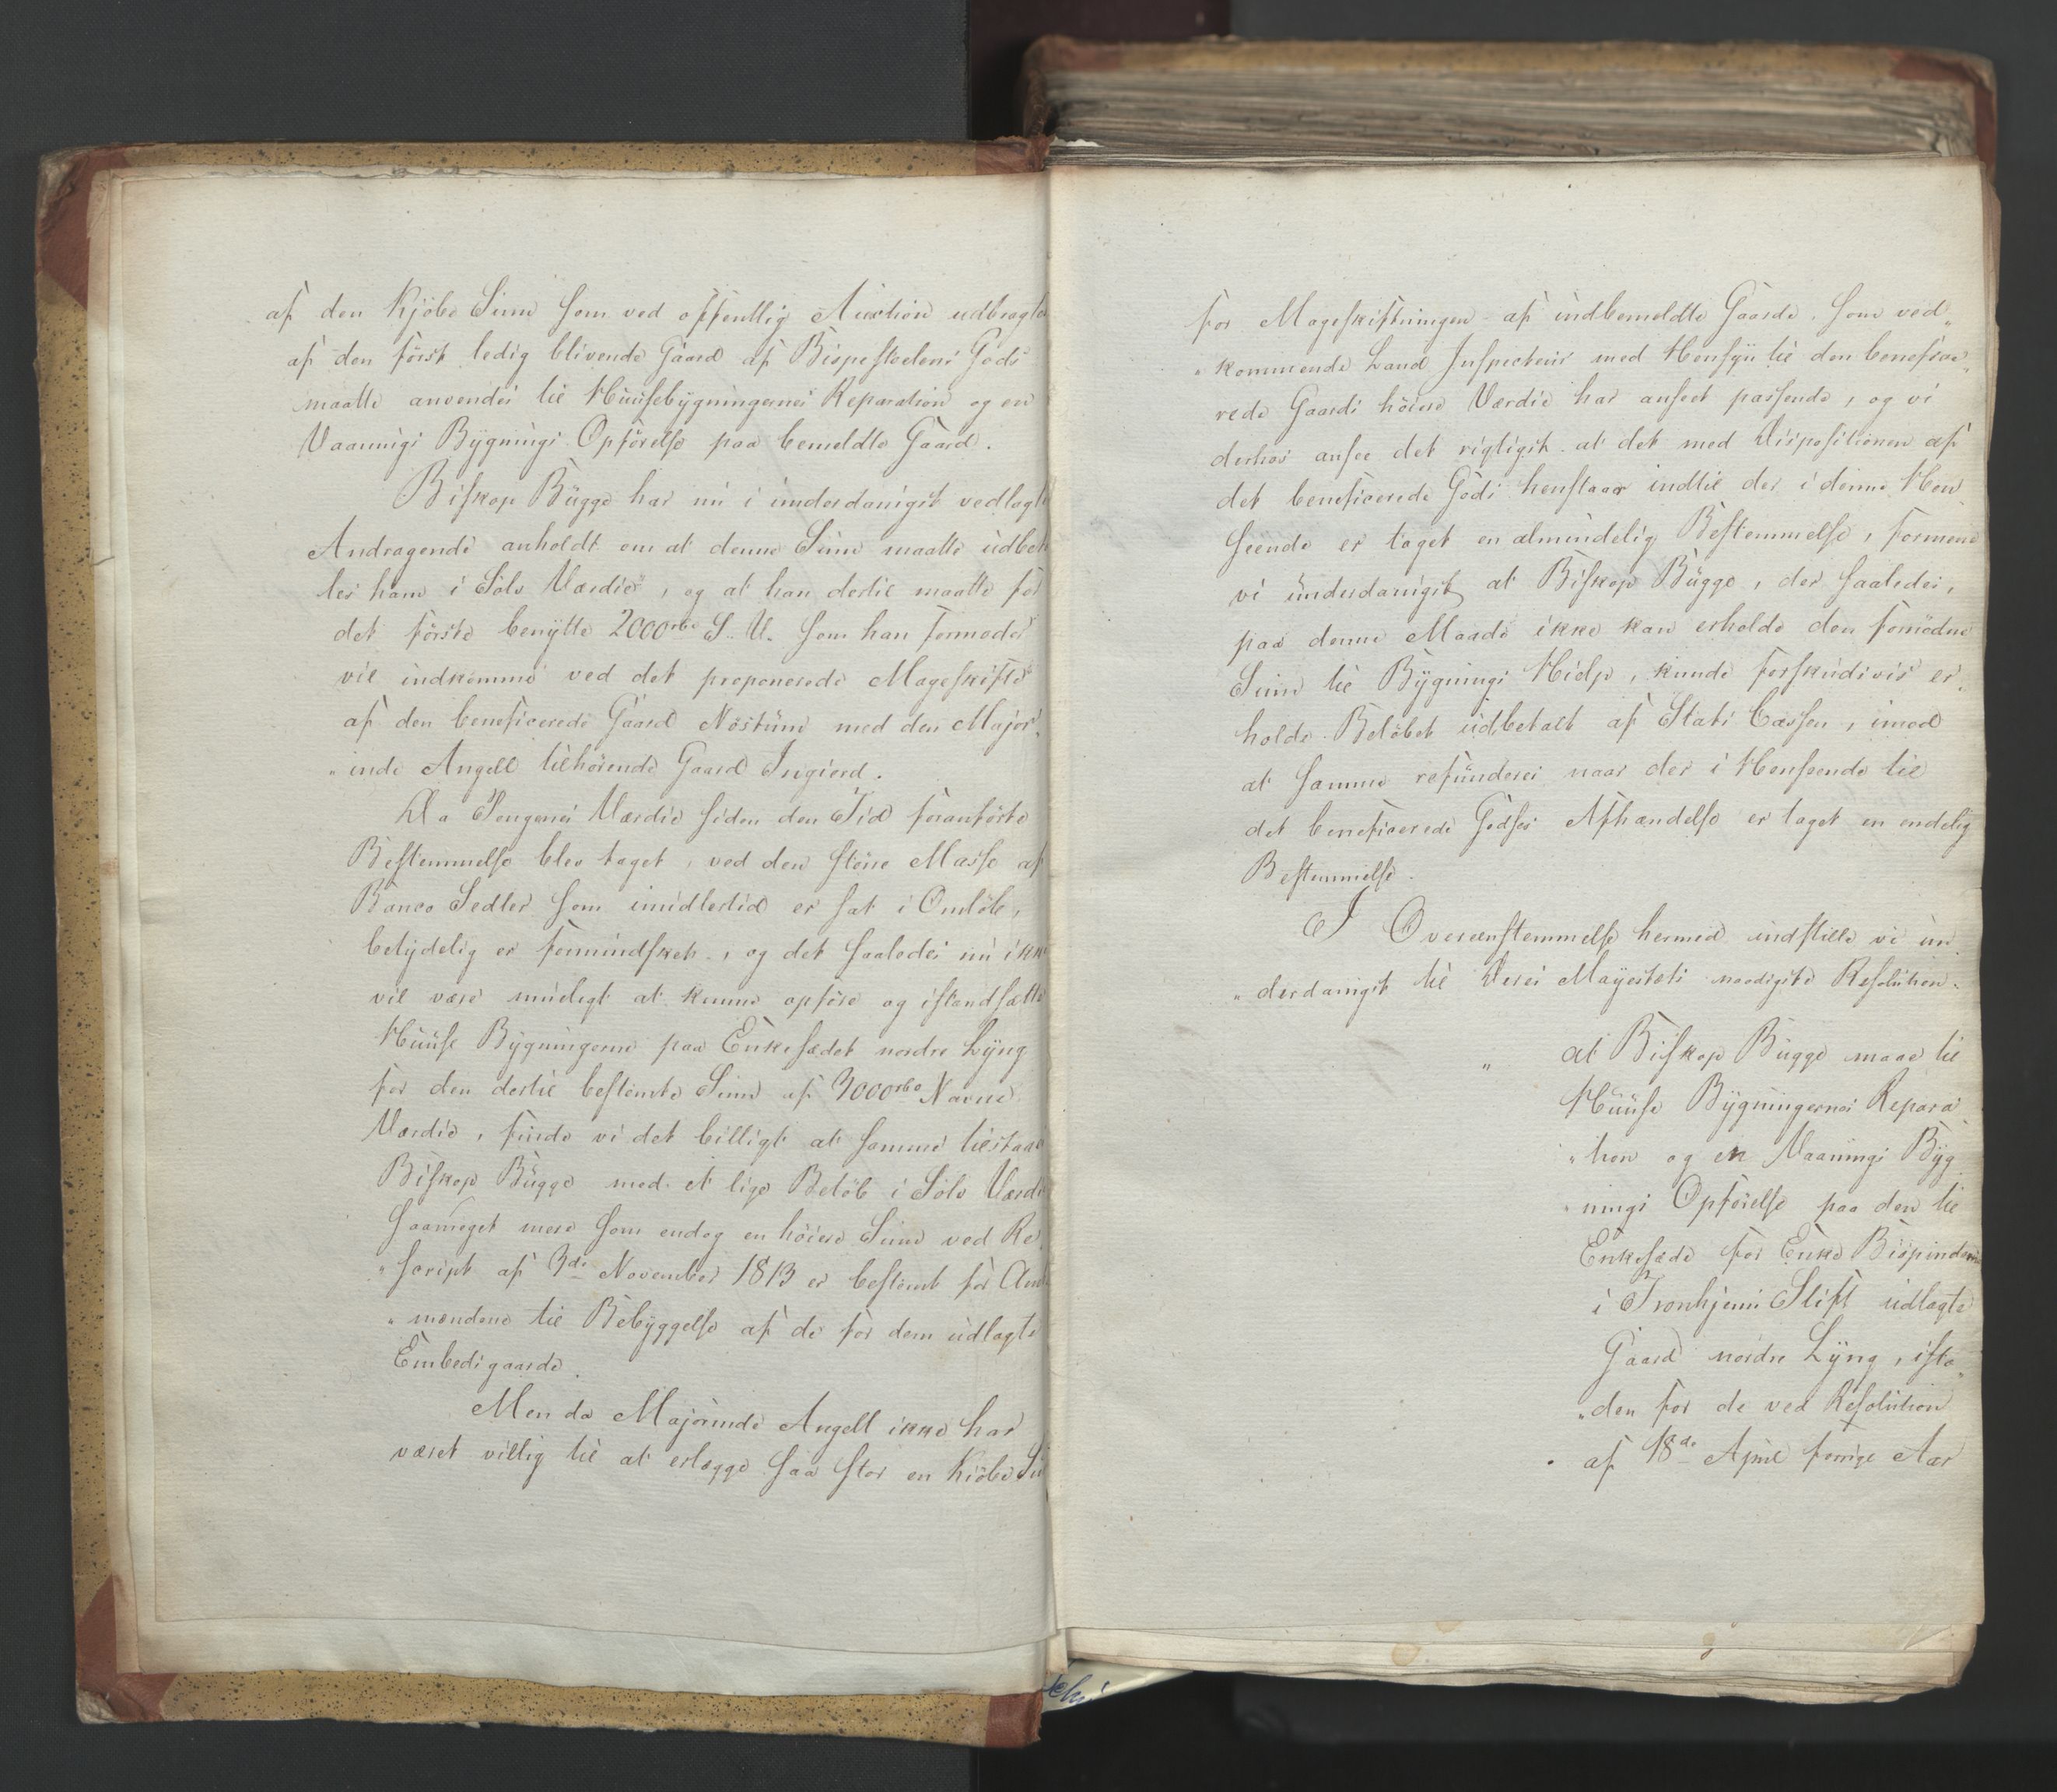 af den Kjöbe Sum som ved offentlig Auction udbragte
af den först ledig blivende Gaard af Bispestolens Gods
maatte anvendes til Huusebygningernes Reparation og en
Vaanings Bygnings Opförelse paa bemeldte Gaard.
Biskop Bugge har nu i underdanigst vedlagte
Andragende anholdt om at denne Sum maatte udbeta
les ham i Sölv Værdie, og at han dertil maatte for
det förste benytte 2000 rbd S. V. som han formoder
vil indkomme ved det proponerede Mageskifte
af den beneficerede Gaard Nöstum med den Major
„inde Angell tilhörende Gaard Ingierd.
Da Pengenes Værdie siden den Tid foranförte
Bestemmelse blev taget, ved den större Masse af
Banco Sedler som imidlertid er sat i Omlöb,
betydelig er formindsket, og det saaledes nu ikke
vil være muligt at kunne opföre og istandsætte
Huuse Bygningerne paa Enkesædet nordre Lyng
for den dertil bestemte Sum af 3000 rbd Navne
Værdie, finde vi det billigt at samme tilstaaes
Biskop Bugge med et lige Belöb i Sölv Værdie
saameget mere som endog en höiere Sum ved Re
„script af 3die November 1813 er bestemt for Amt
„mændene til Bebyggelse af de for dem udlagte
Embedsgaarde.
Men da Majorinde Angell ikke har
været villig til at erlægge saa stor en Kiöbe Su
for Mageskiftningen af indbemeldte Gaarde, som ved„
„kommende Land Inspecteur med Hensyn til den benefice„
rede Gaards höiere Værdie har anseet passende, og vi
derhos ansee det rigtigst at det med Dispositionen af
det beneficerede Gods henstaar indtil der i denne Hen
seende er taget en almindelig Bestemmelse, formene
vi underdanigst at Biskop Bugge, der saaledes,
paa denne Maade ikke kan erholde den fornödne
Sum til Bygnings Hielp, kunde forskudsvis er„
holde Belöbet udbetalt af Stats Cassen, imod
at samme refunderes naar der i Henseende til
det beneficerede Godses Afhændelse er taget en endelig
Bestemmelse.
I Overeenstemmelse hermed indstille vi un
„derdanigst til Deres Mayestæts naadigste Resolution.
„ at Biskop Bugge maae til
Huuse Bygningernes Repara
„tion og en Vaanings Byg
„nings Opförelse paa den til
Enkesæde for Enke Bispinden
i Tronhjems Stift udlagte
Gaard nordre Lyng, iste„
„den for de ved Resolution
af 18de April forrige Aar